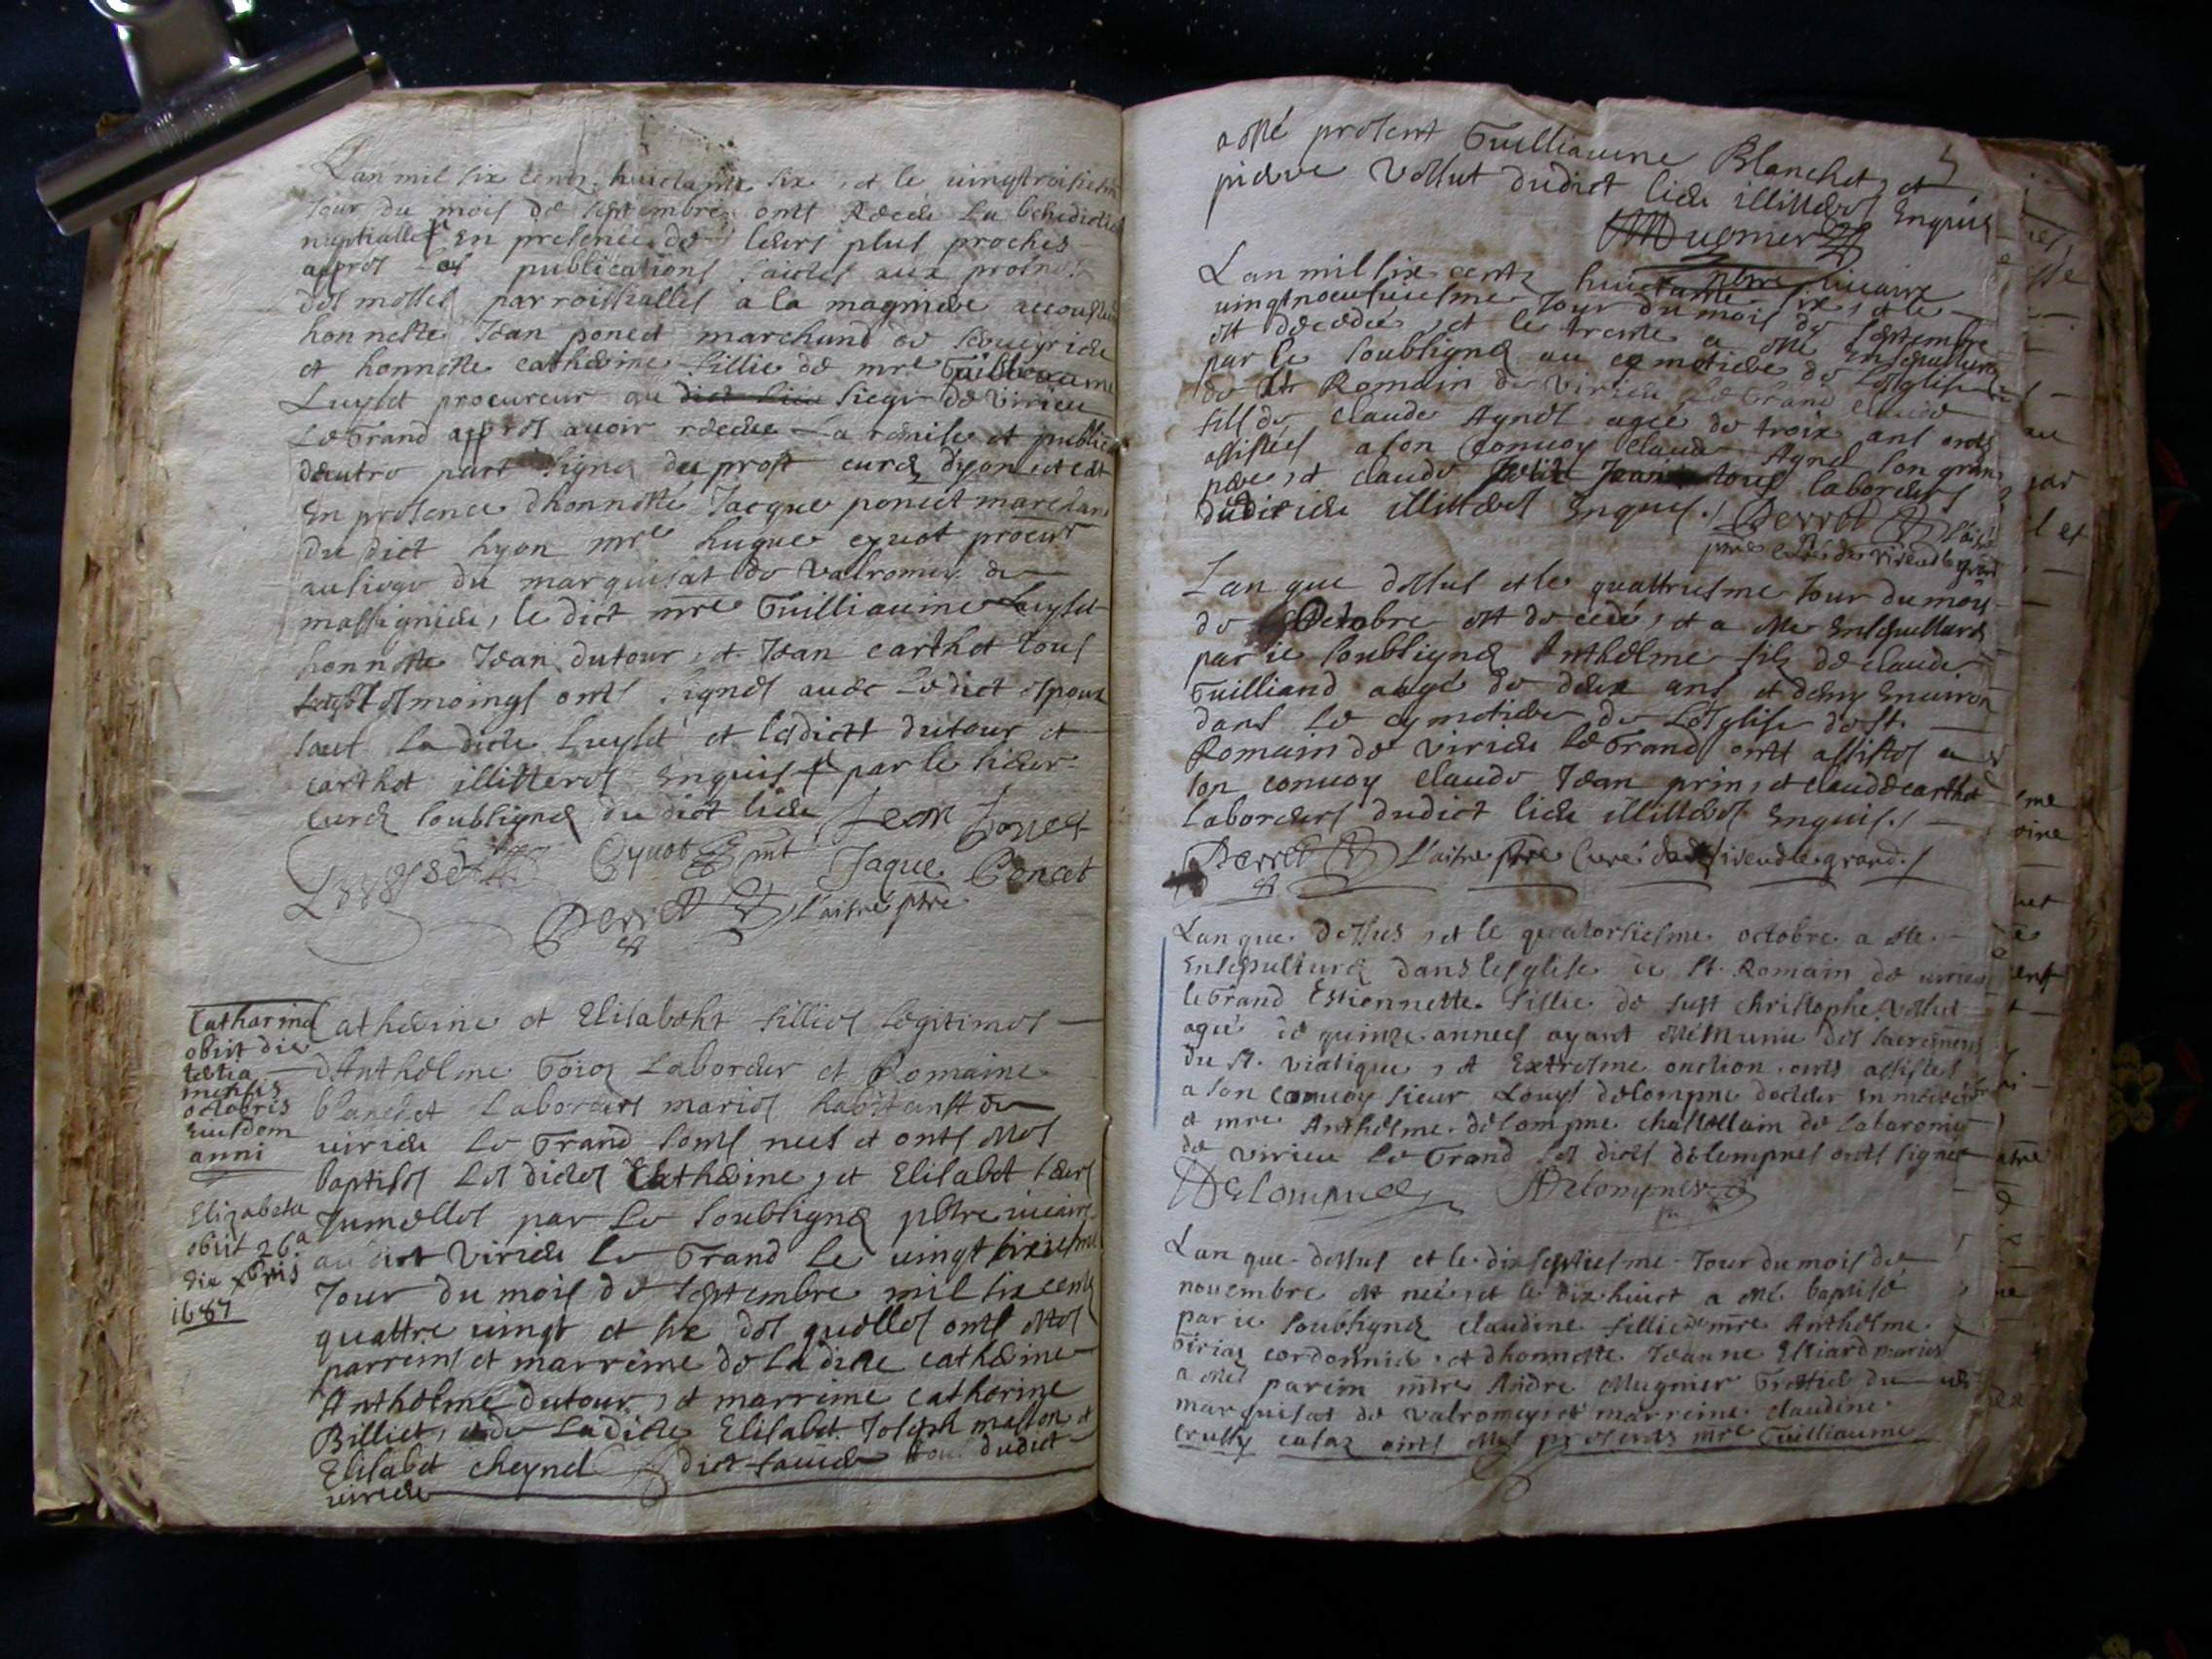 Lan mil six centz huictante six, et le uingtroisiesme
Jour du mois de septembre onts Receu La benediction
nuptialle En presence de leurs plus proches
appres les publications faictes aux prosnes
des messes parroissialles a la magniere accoustumée
honneste Jean poncet marchand de
et honneste catherine fillie de mre Guilliaume
Luyset procureur au siege de Virieu
Le Grand appres auoir receue La remise et
dautre part signez du prost curé dyon et est
En presence dhonneste Jacque poncet marchand
du dict Lyon mre hugue cyuot procur
au siege du marquisat de Valromey de
massignieu, le dict mre Guilliaume Luyset
honneste Jean dutour, et Jean carthet tous
tesmoings onts signés auec Le dict espoux
sauf La dicte Luyset et lesdicts dutour et
carthet illitteres Enquis par le sieur
curé soubsigné du dict lieu Jean Poncet
Cyuot pnt Jaque Poncet
Perret L'aisné ptre
Catharina
obiit die
tertia
mensis
octobris
Eiusdem
anni
Elizabeta
obiit 26a
die xbris
1687
Catherine et Elisabeht fillies Legitimes
dAnthelme Goioz Laboreur et Romaine
blanchet Laboreurs mariés habitants de
uirieu Le Grand sonts nées et onts estes
baptisés Les dictes Catherine, et Elisabet seurs
Jumelles par Le soubsigné pbtre uicaire
au dict Virieu le Grand le uingt sixiesme
Jour du mois de septembre mil six cents
quattre uingt et six des quelles onts estes
parreins et marreine de La dicte catherine
Anthelme dutour, et marreine catherine
Billiet, et de La dicte Elisabet Joseph masson et
Elisabet cheynel dict sauiere tous dudict
uirieu
a esté present Guilliaume Blanchet, et
pierre Vollut dudict lieu illitteres Enquis
Mugnier
pbtre uicaire
Lan mil six centz huictante six, et le
uingtneufuiesme Jour du mois de septembre
est decedée, et le trente a esté Ensepulturé
par le soubsigné au cymetiere de Lesglise
de St Romain de Virieu Le Grand claude
fils de claude Aynel agée de trois ans onts
assistés a son conuoy claude Aynel son grand
pere, et claude Jean tous laboreurs
dudict lieu illitteres Enquis. Perret L'aisné
ptre curé de virieu le grand
Lan que dessus et le quattriesme Jour du moys
de Octobre est decedé, et a este Ensepulturé
par ie soubsigné Anthelme filz de claude
Guilliand aagé de deux ans et demy Enuiron
dans Le cymetiere de Lesglise de St.
Romain de Virieu Le Grand onts assistés a
son conuoy claude Jean prin, et claude carthet
Laboreurs dudict lieu illitteres Enquis.
Perret L'aisné ptre Curé de Virieu le grand.
Lan que dessus, et le quatorsiesme octobre a este
Ensepulturé dans lesglise de St. Romain de uirieu
le Grand Estiennette fillie de feust christophe Vollut
agée de quinze années ayant esté Munie des sacrements
du St. Viatique, et Extresme onction, onts assistés
a son conuoy sieur Louys delompne docteur En medecine
et mre Anthelme delompne chastellain de La baronie
de Virieu Le Grand Les dicts delompnes onts signé
Delompnes ADelompnes
Lan que dessus et le dixseptiesme Jour du mois de
nouembre est née, et le dix huict a esté baptisé
par ie soubsigné claudine fillie de mre Anthelme
cordonnier et dhonneste Jeanne Elliard mariés
a esté parein mtre Andre Mugnier Greffier du
marquisat de Valromey, et marreine claudine
onts estes presents mre Guilliaume